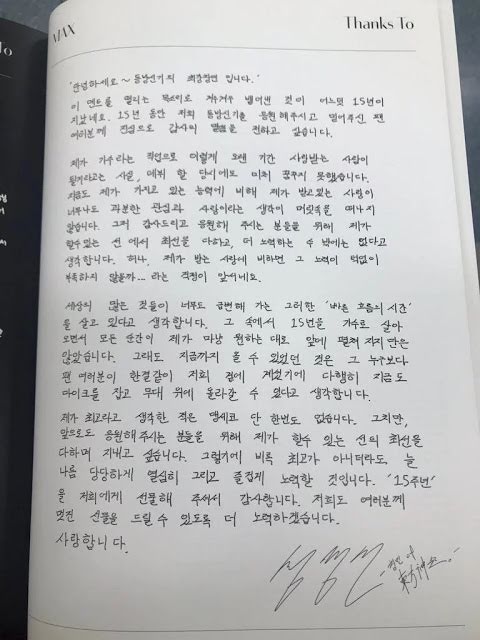 To
MAX
Thanks To
'안녕하세요~ 동방신기의 최강창민 입니다.'
이 멘트를 떨리는 목소리로 겨우겨우 뱉어낸 것이 어느덧 15년이
지났네요. 15년 동안 저희 동방신기를 응원해주시고 믿어주신 팬
여러분께 진심으로 감사의 말씀을 전하고 싶습니다.
제가 가수라는 직업으로 이렇게 오랜 기간 사랑받는 사람이
될거라고는 사실, 데뷔 할 당시에도 미처 꿈꾸지 못했습니다.
지금도 제가 가지고 있는 능력에 비해 제가 받고있는 사랑이
너무나도 과분한 관심과 사랑이라는 생각이 머릿속을 떠나지
않습니다. 그저 감사드리고 응원해 주시는 분들을 위해 제가
할수있는 선에서 최선을 다하고, 더 노력하는 수 밖에는 없다고
생각합니다. 허나, 제가 받는 사랑에 비하면 그 노력이 턱없이
부족하지 않을까... 라는 걱정이 앞서네요.
세상의 많은 것들이 너무도 급변해 가는 그러한 '빠른 흐름의 시간'
을 살고 있다고 생각합니다. 그 속에서 15년을 가수로 살아
오면서 모든 순간이 제가 마냥 원하는 대로 앞에 펼쳐 지지만은
않았습니다. 그래도 지금까지 올 수 있었던 것은 그 누구보다
팬 여러분이 한결같이 저희 곁에 계셨기에 다행히 지금도
마이크를 잡고 무대 위에 올라갈 수 있다고 생각합니다.
제가 최고라고 생각한 적은 맹세코 단 한번도 없습니다. 그치만,
앞으로도 응원해주시는 분들을 위해 제가 할수 있는 선의 최선을
다하며 지내고 싶습니다. 그렇기에 비록 최고가 아니더라도 늘
나름 당당하게 열심히 그리고 즐겁게 노력할 것입니다. '15주년'
을 저희에게 선물해 주셔서 감사합니다. 저희도 여러분께
멋진 선물을 드릴 수 있도록 더 노력하겠습니다.
사랑합니다.